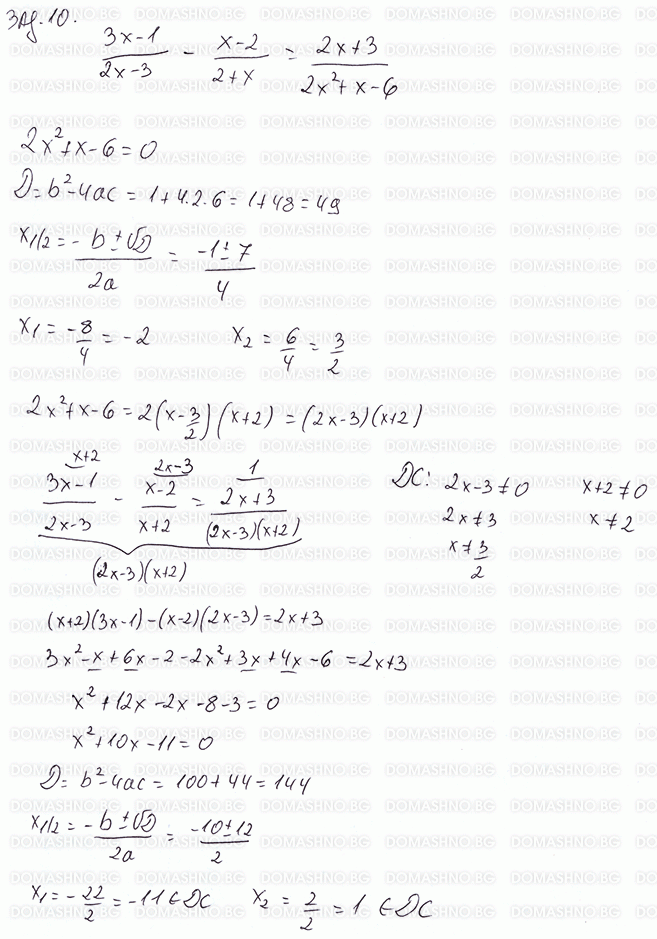 Зад. 10.
(3x-1)/(2x-3) - (x-2)/(2+x) = (2x+3)/(2x²+x-6)
2x²+x-6=0
D=b²-4ac = 1+4.2.6 = 1+48 = 49
x1/2 = (-b±√D)/(2a) = (-1±7)/4
x₁ = -8/4 = -2    x₂ = 6/4 = 3/2
2x²+x-6 = 2(x-3/2)(x+2) = (2x-3)(x+2)
x+2    2x-3    1
(3x-1)/(2x-3) - (x-2)/(x+2) = (2x+3)/((2x-3)(x+2))
(2x-3)(x+2)
DC: 2x-3≠0    x+2≠0
2x≠3    x≠2
x≠3/2
(x+2)(3x-1)-(x-2)(2x-3)=2x+3
3x²-x+6x-2-2x²+3x+4x-6=2x+3
x²+12x-2x-8-3=0
x²+10x-11=0
D= b²-4ac = 100+44=144
x1/2 = (-b±√D)/(2a) = (-10±12)/2
x₁ = -22/2 = -11 ∈ DC    x₂ = 2/2 = 1 ∈ DC
DOMASHNO.BG